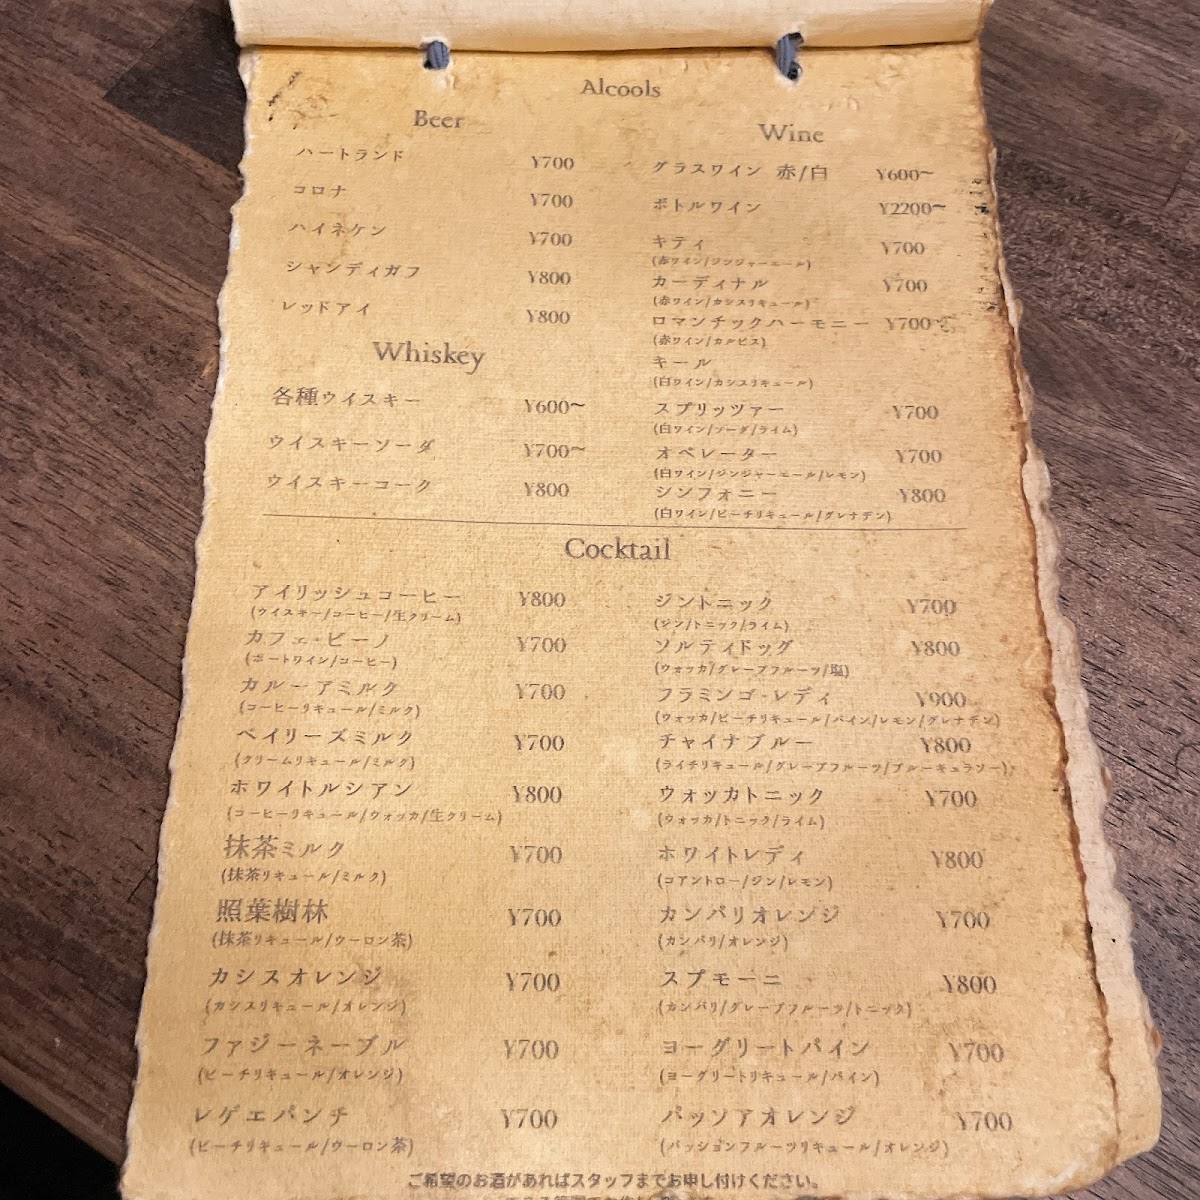 Alcools
Beer
ハートランド ¥700
コロナ ¥700
ハイネケン ¥700
シャンディガフ ¥800
レッドアイ ¥800
Whiskey
各種ウイスキー ¥600~
ウイスキーソーダ ¥700~
ウイスキーコーク ¥800
Wine
グラスワイン 赤/白 ¥600~
ボトルワイン ¥2200~
キティ ¥700
(赤ワイン/ジンジャーエール)
カーディナル ¥700
(赤ワイン/カシスリキュール)
ロマンチックハーモニー ¥700
(赤ワイン/カルピス)
キール
(白ワイン/カシスリキュール)
スプリッツァー ¥700
(白ワイン/ソーダ/ライム)
オペレーター ¥700
(白ワイン/ジンジャーエール/レモン)
シンフォニー ¥800
(白ワイン/ピーチリキュール/グレナデン)
Cocktail
アイリッシュコーヒー ¥800
(ウイスキー/コーヒー/生クリーム)
カフェ・ビーノ ¥700
(ポートワイン/コーヒー)
カルーアミルク ¥700
(コーヒーリキュール/ミルク)
ベイリーズミルク ¥700
(クリームリキュール/ミルク)
ホワイトルシアン ¥800
(コーヒーリキュール/ウォッカ/生クリーム)
抹茶ミルク ¥700
(抹茶リキュール/ミルク)
照葉樹林 ¥700
(抹茶リキュール/ウーロン茶)
カシスオレンジ ¥700
(カシスリキュール/オレンジ)
ファジーネーブル ¥700
(ピーチリキュール/オレンジ)
レゲエパンチ ¥700
(ピーチリキュール/ウーロン茶)
ジントニック ¥700
(ジン/トニック/ライム)
ソルティドッグ ¥800
(ウォッカ/グレープフルーツ/塩)
フラミンゴ・レディ ¥900
(ウォッカ/ピーチリキュール/パイン/レモン/グレナデン)
チャイナブルー ¥800
(ライチリキュール/グレープフルーツ/ブルーキュラソー)
ウォッカトニック ¥700
(ウォッカ/トニック/ライム)
ホワイトレディ ¥800
(コアントロー/ジン/レモン)
カンパリオレンジ ¥700
(カンパリ/オレンジ)
スプモーニ ¥800
(カンパリ/グレープフルーツ/トニック)
ヨーグリートパイン ¥700
(ヨーグリートリキュール/パイン)
パッソアオレンジ ¥700
(パッションフルーツリキュール/オレンジ)
ご希望のお酒があればスタッフまでお申し付けください。